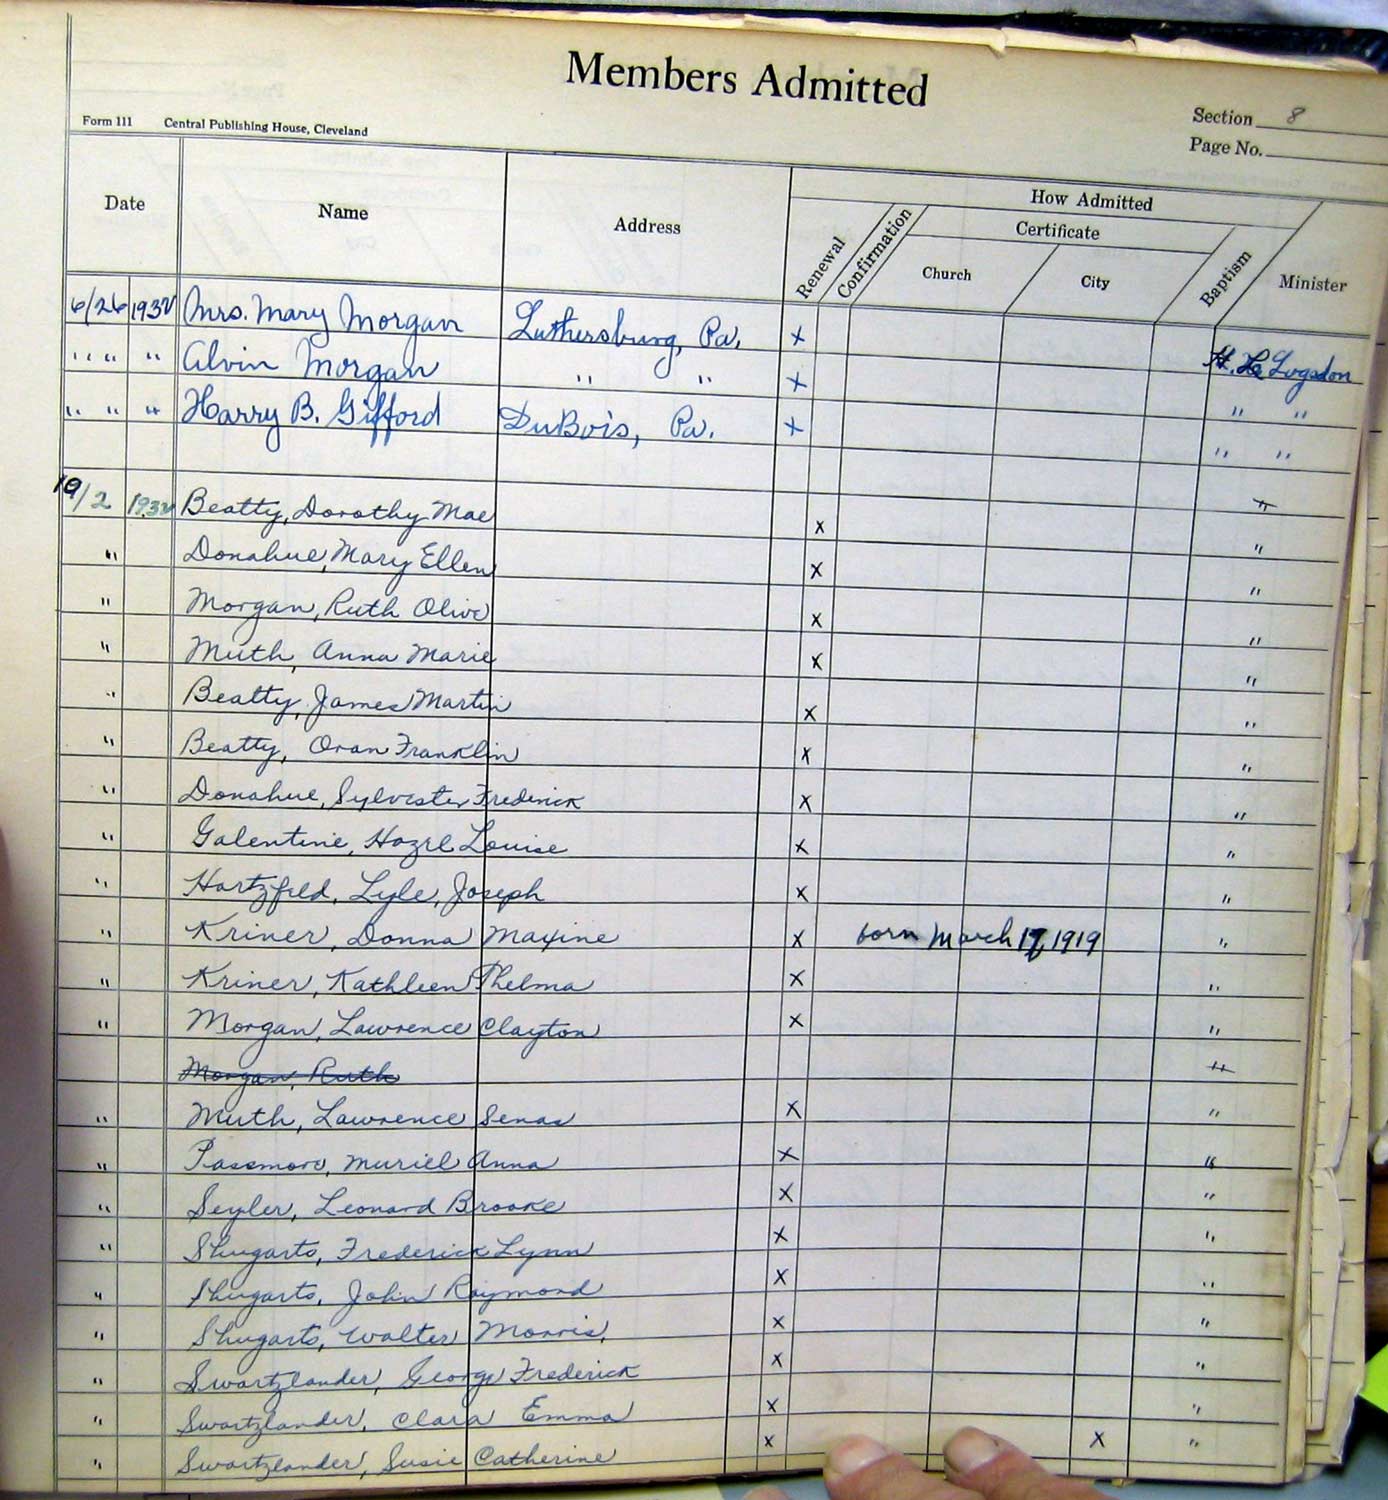 Members Admitted
Section 8
Page No.
Form 111 Central Publishing House, Cleveland
How Admitted
Certificate
Date Name Address Renewal Confirmation Church City Baptism Minister
6/26 1932 Mrs. Mary Morgan Luthersburg, Pa. x H. L. Logsdon
" " " Alvin Morgan " " x " "
" " " Harry B. Gifford DuBois, Pa. x " "
/2 1932 Beatty, Dorothy Mae x "
" Donahue, Mary Ellen x "
" Morgan, Ruth Olive x "
" Muth, Anna Marie x "
" Beatty, James Martin x "
" Beatty, Oran Franklin x "
" Donahue, Sylvester Frederick x "
" Galentine, Hazel Louise x "
" Hartzfeld, Lyle, Joseph x "
" Kriner, Donna Maxine x born March 1919 "
" Kriner, Kathleen Thelma x "
" Morgan, Lawrence Clayton x "
Morgan, Ruth "
" Muth, Lawrence Senas x "
" Passmore, Muriel Anna x "
" Seyler, Leonard Brooke x "
" Shugarts, Frederick Lynn x "
" Shugarts, John Raymond x "
" Shugarts, Walter Morris. x "
" Swartzlander, George Frederick x "
" Swartzlander, Clara Emma x "
" Swartzlander, Susie Catherine x x "